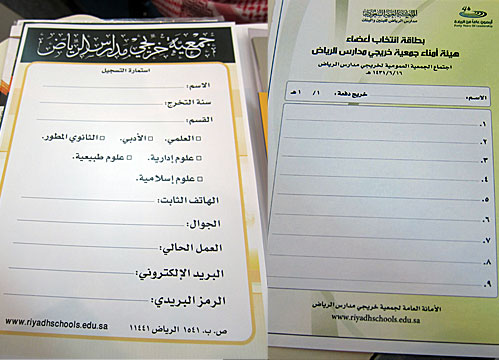 جمعية خريجي مدارس الرياض
استمارة التسجيل
الاسم:
سنة التخرج:
القسم:
□ العلمي. □ الأدبي. □ الثانوي المطور.
□ علوم إدارية. □ علوم طبيعية.
□ علوم إسلامية.
الهاتف الثابت:
الجوال:
العمل الحالي:
البريد الإلكتروني:
الرمز البريدي:
ص.ب. ١٥٤١ الرياض ١١٤٤١
www.riyadhschools.edu.sa
بطاقة انتخاب أعضاء
هيئة أمناء جمعية خريجي مدارس الرياض
اجتماع الجمعية العمومية لخريجي مدارس الرياض
١٤٣١/٦/١٦هـ
الاسم: خريج دفعة: ١ / ١ هـ
١.
٢.
٣.
٤.
٥.
٦.
٧.
٨.
٩.
الأمانة العامة لجمعية خريجي مدارس الرياض
www.riyadhschools.edu.sa